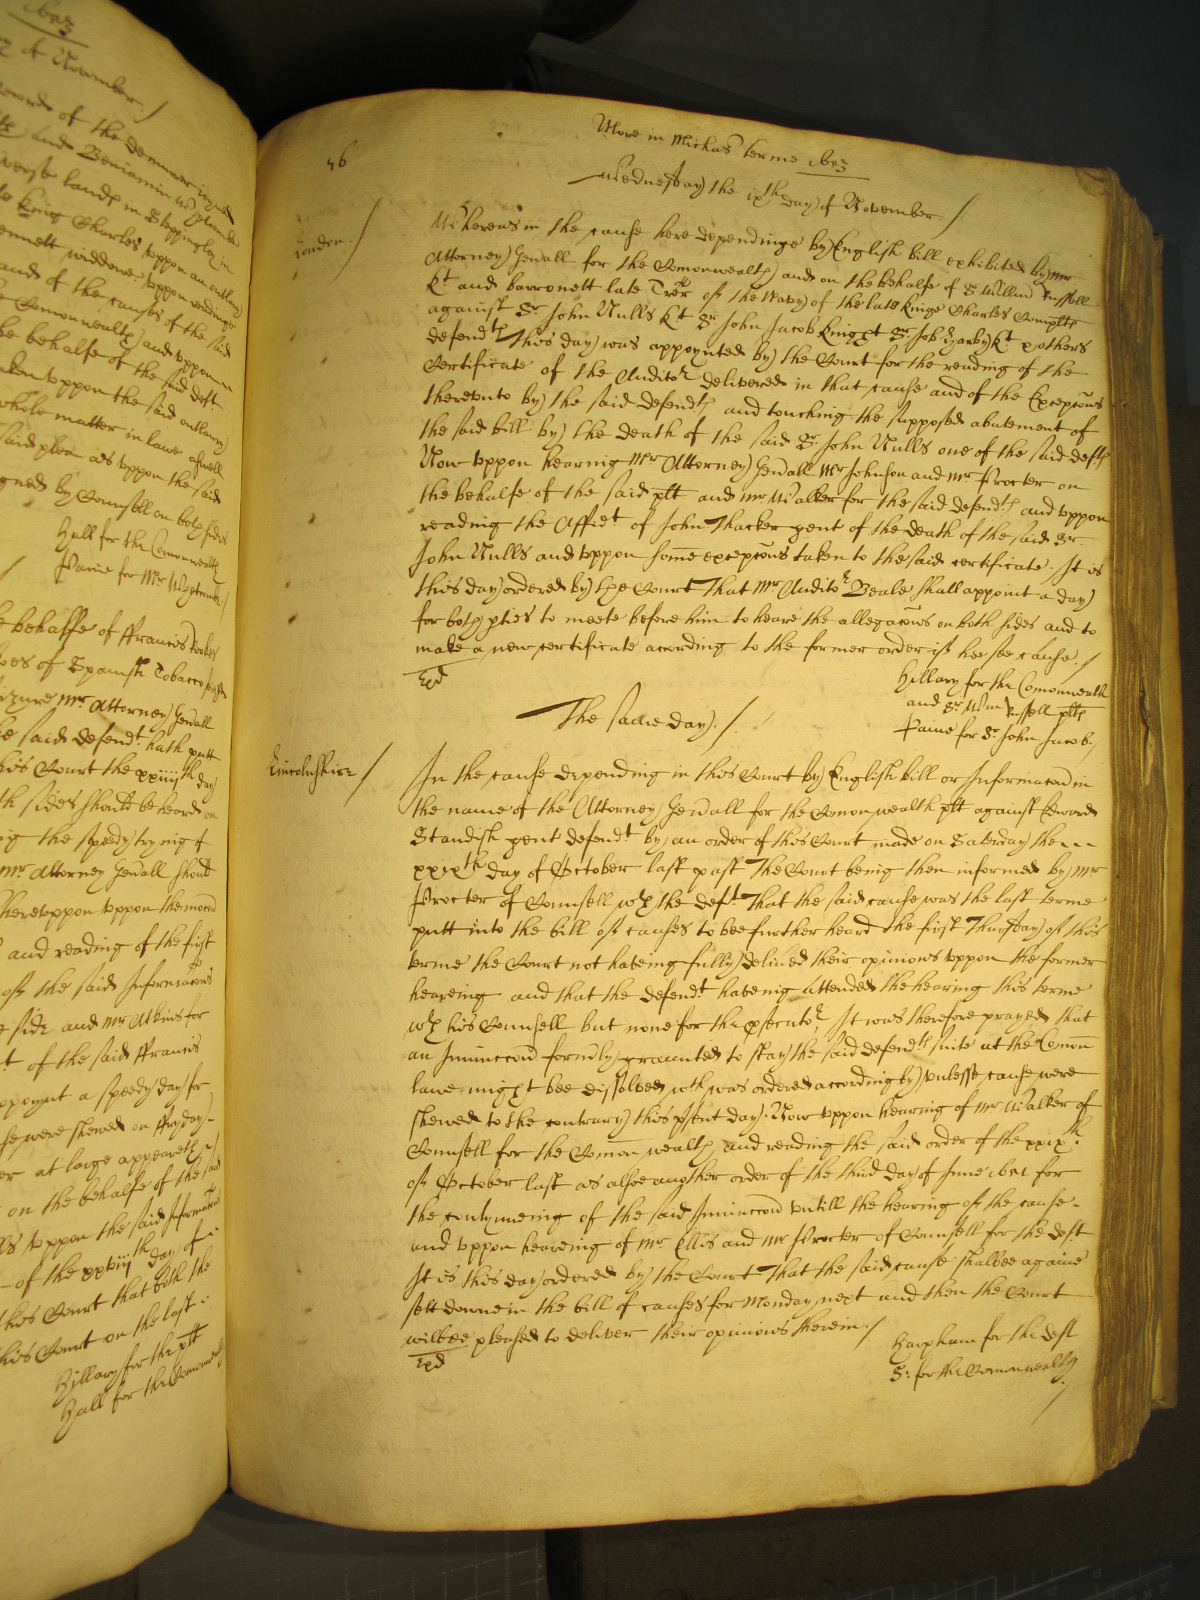 1653
of November /
of the demurrer joyned
and Beniamin
landes in Steppingley in
king Charles vppon an outlawry
widdowe vppon readinge
and of the causes of the said
Comonwealth and vppon
the behalfe of the said deft
taken vppon the said outlawry
whole matter in lawe aswell
said plea as vppon the said
by Counsell on both sides
Hall for the Comonwealth
Paine for Mr
behalfe of ffrancis
of Spanish Tobacco
Mr Attorney Genall
the said defendt hath putt
this Court the xxiiijth day
sides should be heard on
the speedy trying of
Mr Attorney Genall should
Therevppon vppon the
and reading of the first
of the said Informacons
side and Mr Atkins for
of the said ffrancis
appoynt a speedy day for
were shewed on ffryday
at large appeareth
on the behalfe of the said
vppon the said Informacon
of the xxviijth day of
this Court that both the
this Court on the last
Hillary for the plt
Hall for the Comonwealth
More in Michas terme 1653
56
Wednesday the ixth day of November /
London /
Whereas in the cause here dependinge by English bill exhibited by Mr
Attorney Genall for the Comonwealth and on the behalfe of Sr William Russell
Kt and barronett late Trer of the Navy of the late kinge Charles Complts
against Sr John Nulls Kt Sr John Jacob knight Sr Job Harby Kt & others
defendts This day was appoynted by the Court for the reading of the
Certificate of the Auditor delivered in that cause and of the Excepcons
therevnto by the said defendts and touching the supposed abatement of
the said bill by the death of the said Sr John Nulls one of the said defts
Now vppon hearing Mr Attorney Genall Mr Johnson and Mr Procter on
the behalfe of the said plt and Mr Walker for the said defendts and vppon
reading the Affidt of John Thacker gent of the death of the said Sr
John Nulls and vppon some excepcons taken to the said certificate. It is
this day ordered by the Court That Mr Auditor Beale shall appoint a day
for both pties to meete before him to heare the allegacons on both sides and to
make a new certificate according to the former order if hee see cause /
Exd
Hillary for the Comonwealth
and Sr Wm Russell plts
Paine for Sr John Jacob
The same day /
Lincolnshire /
In the cause depending in this Court by English bill or Informacon in
the name of the Attorney Genall for the Comonwealth plt against Edward
Standish gent defendt by an order of this Court made on Saterday the
xxixth day of October last past The Court being then informed by Mr
Procter of Counsell wth the deft That the said cause was the last terme
putt into the bill of causes to bee further heard the first Thursday of this
terme the Court not haveing fully delived their opinions vppon the former
heareing and that the defendt haveing attended the hearing this terme
wth his Counsell but none for the psecutor, It was therefore prayed that
an Iniunccon formerly graunted to stay the said defendts suite at the Comon
lawe might bee dissolved wch was ordered accordingly vnlesse cause were
shewed to the contrary this psent day. Now vppon hearing of Mr Walker of
Counsell for the Comonwealth, and reading the said order of the xxixth
of October last as alsoe another order of the third day of June 1651 for
the contynueing of the said Iniunccon vntill the hearing of the cause
and vppon heareing of Mr Ellis and Mr Procter of Counsell for the deft
It is this day ordered by the Court That the said cause shalbee againe
sett downe in the bill of causes for Monday next and then the Court
wilbee pleased to deliver their opinions therein /
Exd
Harpham for the deft
S: for the Comonwealth